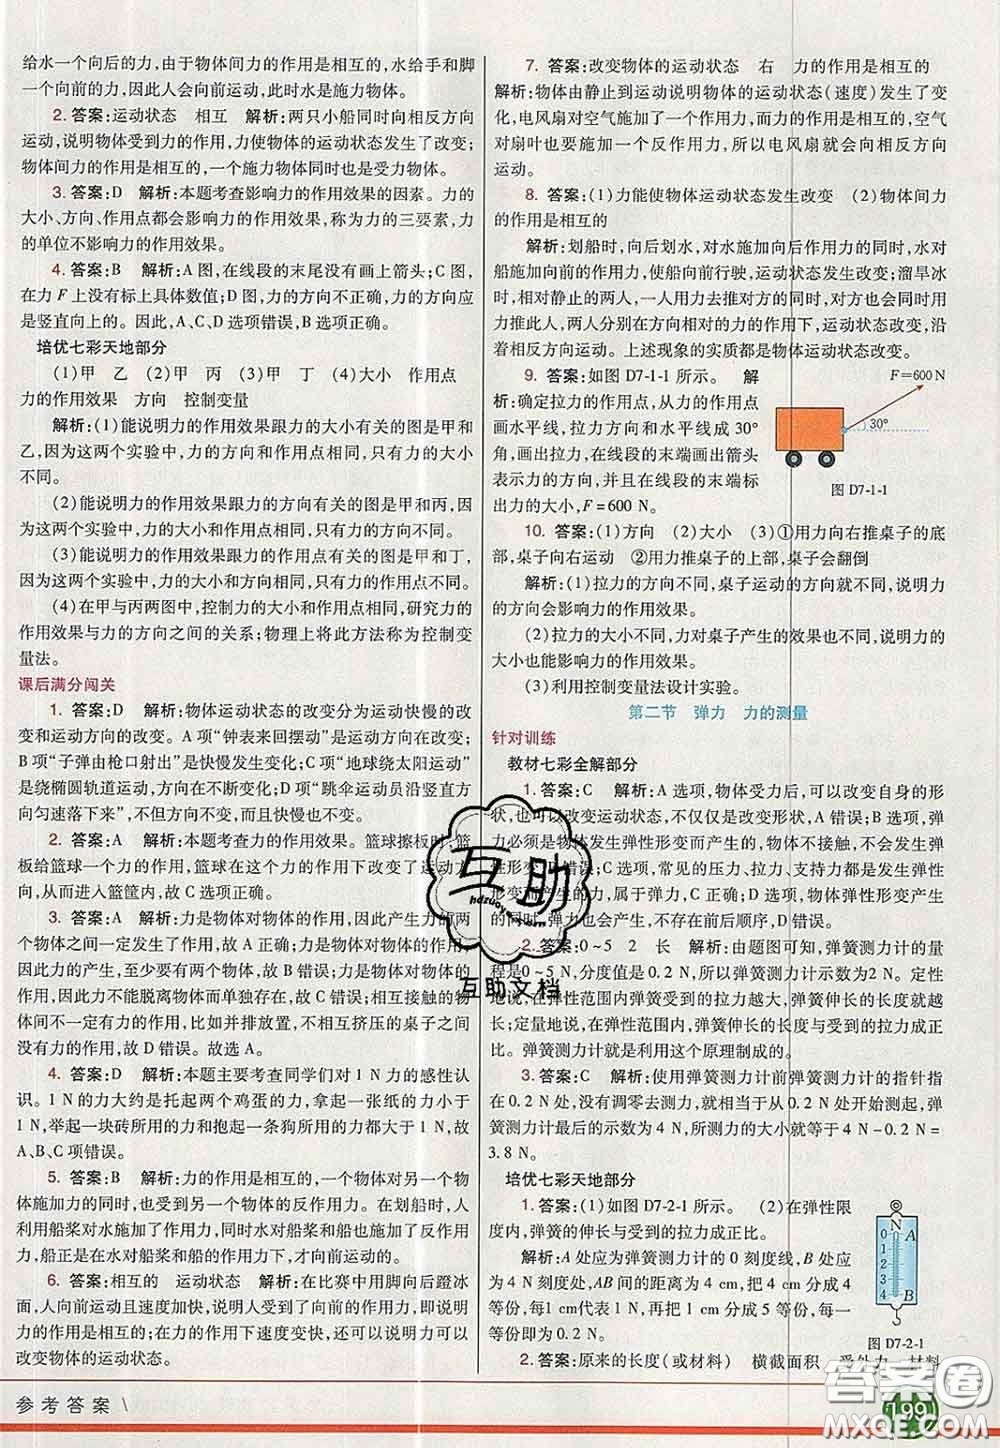 给水一个向后的力,由于物体间力的作用是相互的,水给手和脚
一个向前的力,因此人会向前运动,此时水是施力物体。
2. 答案:运动状态 相互 解析:两只小船同时向相反方向
运动,说明物体受到力的作用,力使物体的运动状态发生了改变;
物体间力的作用是相互的,一个施力物体同时也是受力物体。
3. 答案:D 解析:本题考查影响力的作用效果的因素。力的
大小、方向、作用点都会影响力的作用效果,称为力的三要素,力
的单位不影响力的作用效果。
4. 答案:B 解析:A图,在线段的末尾没有画上箭头;C图,
在力F上没有标上具体数值;D图,力的方向不正确,力的方向应
是竖直向上的。因此,A、C、D选项错误,B选项正确。
培优七彩天地部分
(1)甲 乙 (2)甲 丙 (3)甲 丁 (4)大小 作用点
力的作用效果 方向 控制变量
解析:(1)能说明力的作用效果跟力的大小有关的图是甲和
乙,因为这两个实验中,力的方向和作用点相同,只有力的大小不
同。
(2)能说明力的作用效果跟力的方向有关的图是甲和丙,
因为这两个实验中,力的大小和作用点相同,只有力的方向不同。
(3)能说明力的作用效果跟力的作用点有关的图是甲和丁,
因为这两个实验中,力的大小和方向相同,只有力的作用点不同。
(4)在甲与丙两图中,控制力的大小和作用点相同,研究力的
作用效果与力的方向之间的关系;物理上将此方法称为控制变
量法。
课后满分闯关
1. 答案:D 解析:物体运动状态的改变分为运动快慢的改
变和运动方向的改变。A项“钟表来回摆动”是运动方向在改变;
B项“子弹由枪口射出”是快慢发生变化;C项“地球绕太阳运动”,
是绕椭圆轨道运动,方向在不断变化;D项“跳伞运动员沿竖直方
向匀速落下来”,不但快慢不变,而且方向也不变。
2. 答案:A 解析:本题考查力的作用效果。篮球擦板时,篮
板给篮球一个力的作用,篮球在这个力的作用下改变了运动方
向,从而进入篮筐内,故C选项正确。
3. 答案:A 解析:力是物体对物体的作用,因此产生力的两
个物体之间一定发生了作用,故A正确;力是物体对物体的作用,
因此力的产生,至少要有两个物体,故B错误;力是物体对物体的
作用,因此力不能脱离物体而存在,故C错误;相互接触的物
体间不一定有力的作用,比如并排放置,不相互挤压的桌子之间
没有力的作用,故D错误。故选A。
4. 答案:D 解析:本题主要考查同学们对1 N力的感性认
识。1 N的力大约是托起两个鸡蛋的力,拿起一张纸的力小于
1 N,举起一块砖所用的力和抱起一条狗所用的力都大于1 N,故
A、B、C项错误。
5. 答案:B 解析:力的作用是相互的,一个物体对另一个物
体施加力的同时,也受到另一个物体的反作用力。在划船时,人
利用船桨对水施加了作用力,同时水对船桨和船也施加了反作用
力,船正是在水对船桨和船的作用力下,才向前运动的。
6. 答案:相互的 运动状态 解析:在比赛中用脚向后蹬冰
面,人向前运动且速度加快,说明人受到了向前的作用力,即说明
力的作用是相互的;在力的作用下速度变快,还可以说明力可以
改变物体的运动状态。
参考答案
7. 答案:改变物体的运动状态 右 力的作用是相互的
解析:物体由静止到运动说明物体的运动状态(速度)发生了变
化,电风扇对空气施加了一个作用力,而力的作用是相互的,空气
对扇叶也要施加一个反作用力,所以电风扇会向相反方向
运动。
8. 答案:(1)力能使物体运动状态发生改变 (2)物体间力
的作用是相互的
解析:划船时,向后划水,对水施加向后作用力的同时,水对
船施加向前的作用力,使船向前行驶,运动状态发生改变;溜旱冰
时,相对静止的两人,一人用力去推对方的同时,对方对人也施加
推力,因此人、两人分别在方向相对的力的作用下,运动状态改变,沿
着相反方向运动。上述现象的实质都是物体运动状态改变。
9. 答案:如图D7-1-1所示。 解
析:确定拉力的作用点,从力的作用点
画水平线,拉力方向和水平线成30°
角,画出力,在线段的末端画出箭头
表示力的方向,并且在线段的末端标
出力的大小,F=600 N。
F=600 N
30°
图 D7-1-1
10. 答案:(1)方向 (2)大小 (3)①用力向右推桌子的底
部,桌子向右运动 ②用力推桌子的上部,桌子会翻倒
解析:(1)拉力的方向不同,桌子运动的方向就不同,说明力
的方向会影响力的作用效果。
(2)拉力的大小不同,力对桌子产生的效果也不同,说明力的
大小也能影响力的作用效果。
(3)利用控制变量法设计实验。
第二节 弹力 力的测量
针对训练
教材七彩全解部分
1. 答案:C 解析:A选项,物体受力后,可以改变物体的形
状,也可以改变运动状态,不仅仅是改变形状,故A错误;B选项,弹
力必须是物体发生弹性形变而产生的,物体不接触,不会发生
弹性形变,B错误;C选项,常见的压力、拉力、支持力都是发生弹性
形变而产生的力,属于弹力,C正确;D选项,物体弹性形变产生
的同时,弹力也会产生,不存在前后顺序,D错误。
2. 答案:0~5 2 长 解析:由题图可知,弹簧测力计的量
程是0~5 N,分度值是0.2 N,所以弹簧测力计示数为2 N。定性
地说,在弹性范围内弹簧受到的拉力越大,弹簧伸长的长度就越
长;定量地说,在弹性范围内,弹簧伸长的长度与受到的拉力成正
比。弹簧测力计就是根据这个原理制成的。
3. 答案:C 解析:使用弹簧测力计前弹簧测力计的指针指
在0.2 N处,没有调零去测力,就相当于从0.2 N处开始测起,弹
簧测力计最后的示数为4 N,所测力的大小就等于4 N-0.2 N=
3.8 N。
培优七彩天地部分
1. 答案:(1)如图D7-2-1所示。 (2)在弹性限
度内,弹簧的伸长与受到的拉力成正比。
解析:A处应为弹簧测力计的0刻度线,B处应
为4 N刻度处,AB间的距离为4 cm,把4 cm分成4
等份,每1 cm代表1 N,再把1 cm分成5等份,每一
等份即为0.2 N。
N
0
1
2
3
4
A
B
图 D7-2-1
2. 答案:原来的长度(或材料) 横截面积 受外力 材料
199
互助
互助文档
答案圈
MXQE.COM